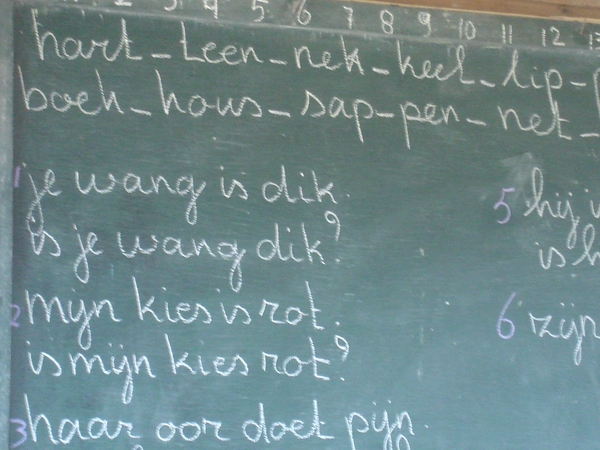 3 4 5 6 7 8 9 10 11 12
hart - teen - nek - keel - lip -
boek - hous - sap - pen - net -
1 je wang is dik.
is je wang dik?
2 mijn kies is rot.
is mijn kies rot?
3 haar oor doet pijn.
5 hij
is
6 zijn